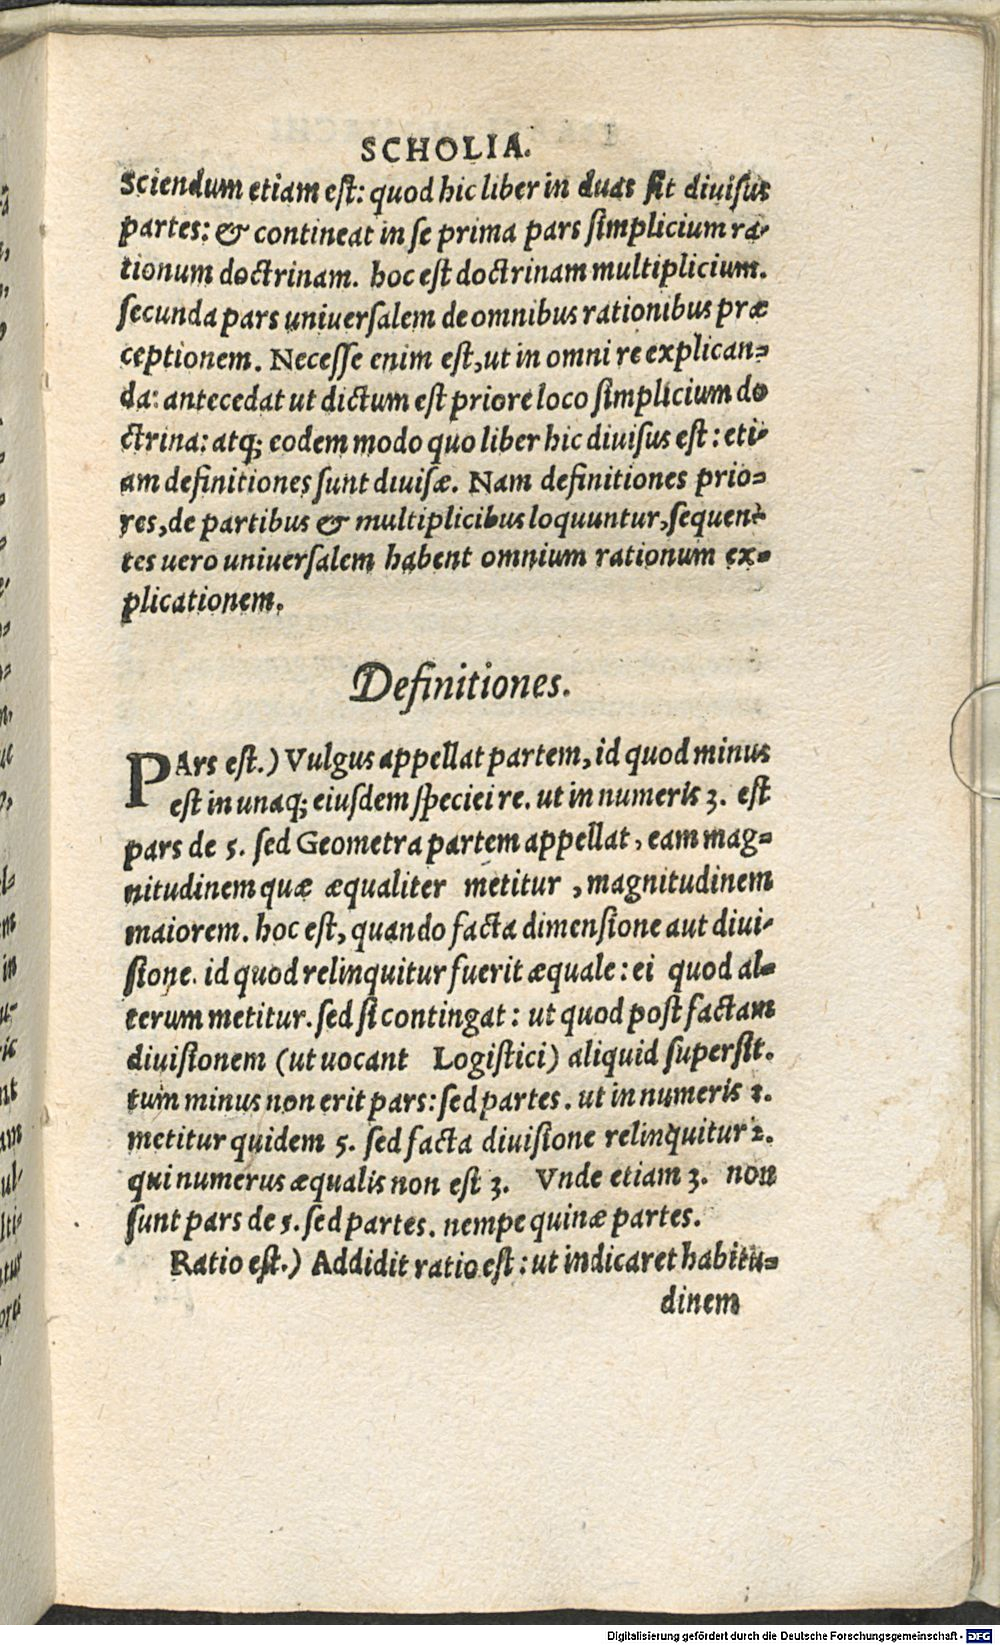 SCHOLIA.
Sciendum etiam eſt: quod hic liber in duas ſit diuiſus
partes: & contineat in ſe prima pars ſimplicium ra-
tionum doctrinam. hoc eſt doctrinam multiplicium.
ſecunda pars uniuerſalem de omnibus rationibus præ
ceptionem. Neceſſe enim eſt, ut in omni re explican=
da: antecedat ut dictum eſt priore loco ſimplicium do
ctrina: atq; eodem modo quo liber hic diuiſus eſt: eti-
am definitiones ſunt diuiſæ. Nam definitiones prio=
res, de partibus & multiplicibus loquuntur, ſequen=
tes uero uniuerſalem habent omnium rationum ex=
plicationem.
Definitiones.
PArs eſt.) Vulgus appellat partem, id quod minus
eſt in unaq; eiuſdem ſpeciei re. ut in numeris 3. eſt
pars de 5. ſed Geometra partem appellat, eam mag=
nitudinem quæ æqualiter metitur, magnitudinem
maiorem. hoc eſt, quando facta dimenſione aut diui-
ſione. id quod relinquitur fuerit æquale: ei quod al=
terum metitur. ſed ſi contingat: ut quod poſt factam
diuiſionem (ut uocant Logiſtici) aliquid ſuperſit.
tum minus non erit pars: ſed partes. ut in numeris 3.
metitur quidem 5. ſed facta diuiſione relinquitur 2.
qui numerus æqualis non eſt 3. Vnde etiam 3. non
ſunt pars de 5. ſed partes. nempe quinæ partes.
Ratio eſt.) Addidit ratio eſt: ut indicaret habitu=
dinem
Digitalisierung gefördert durch die Deutsche Forschungsgemeinschaft - DFG